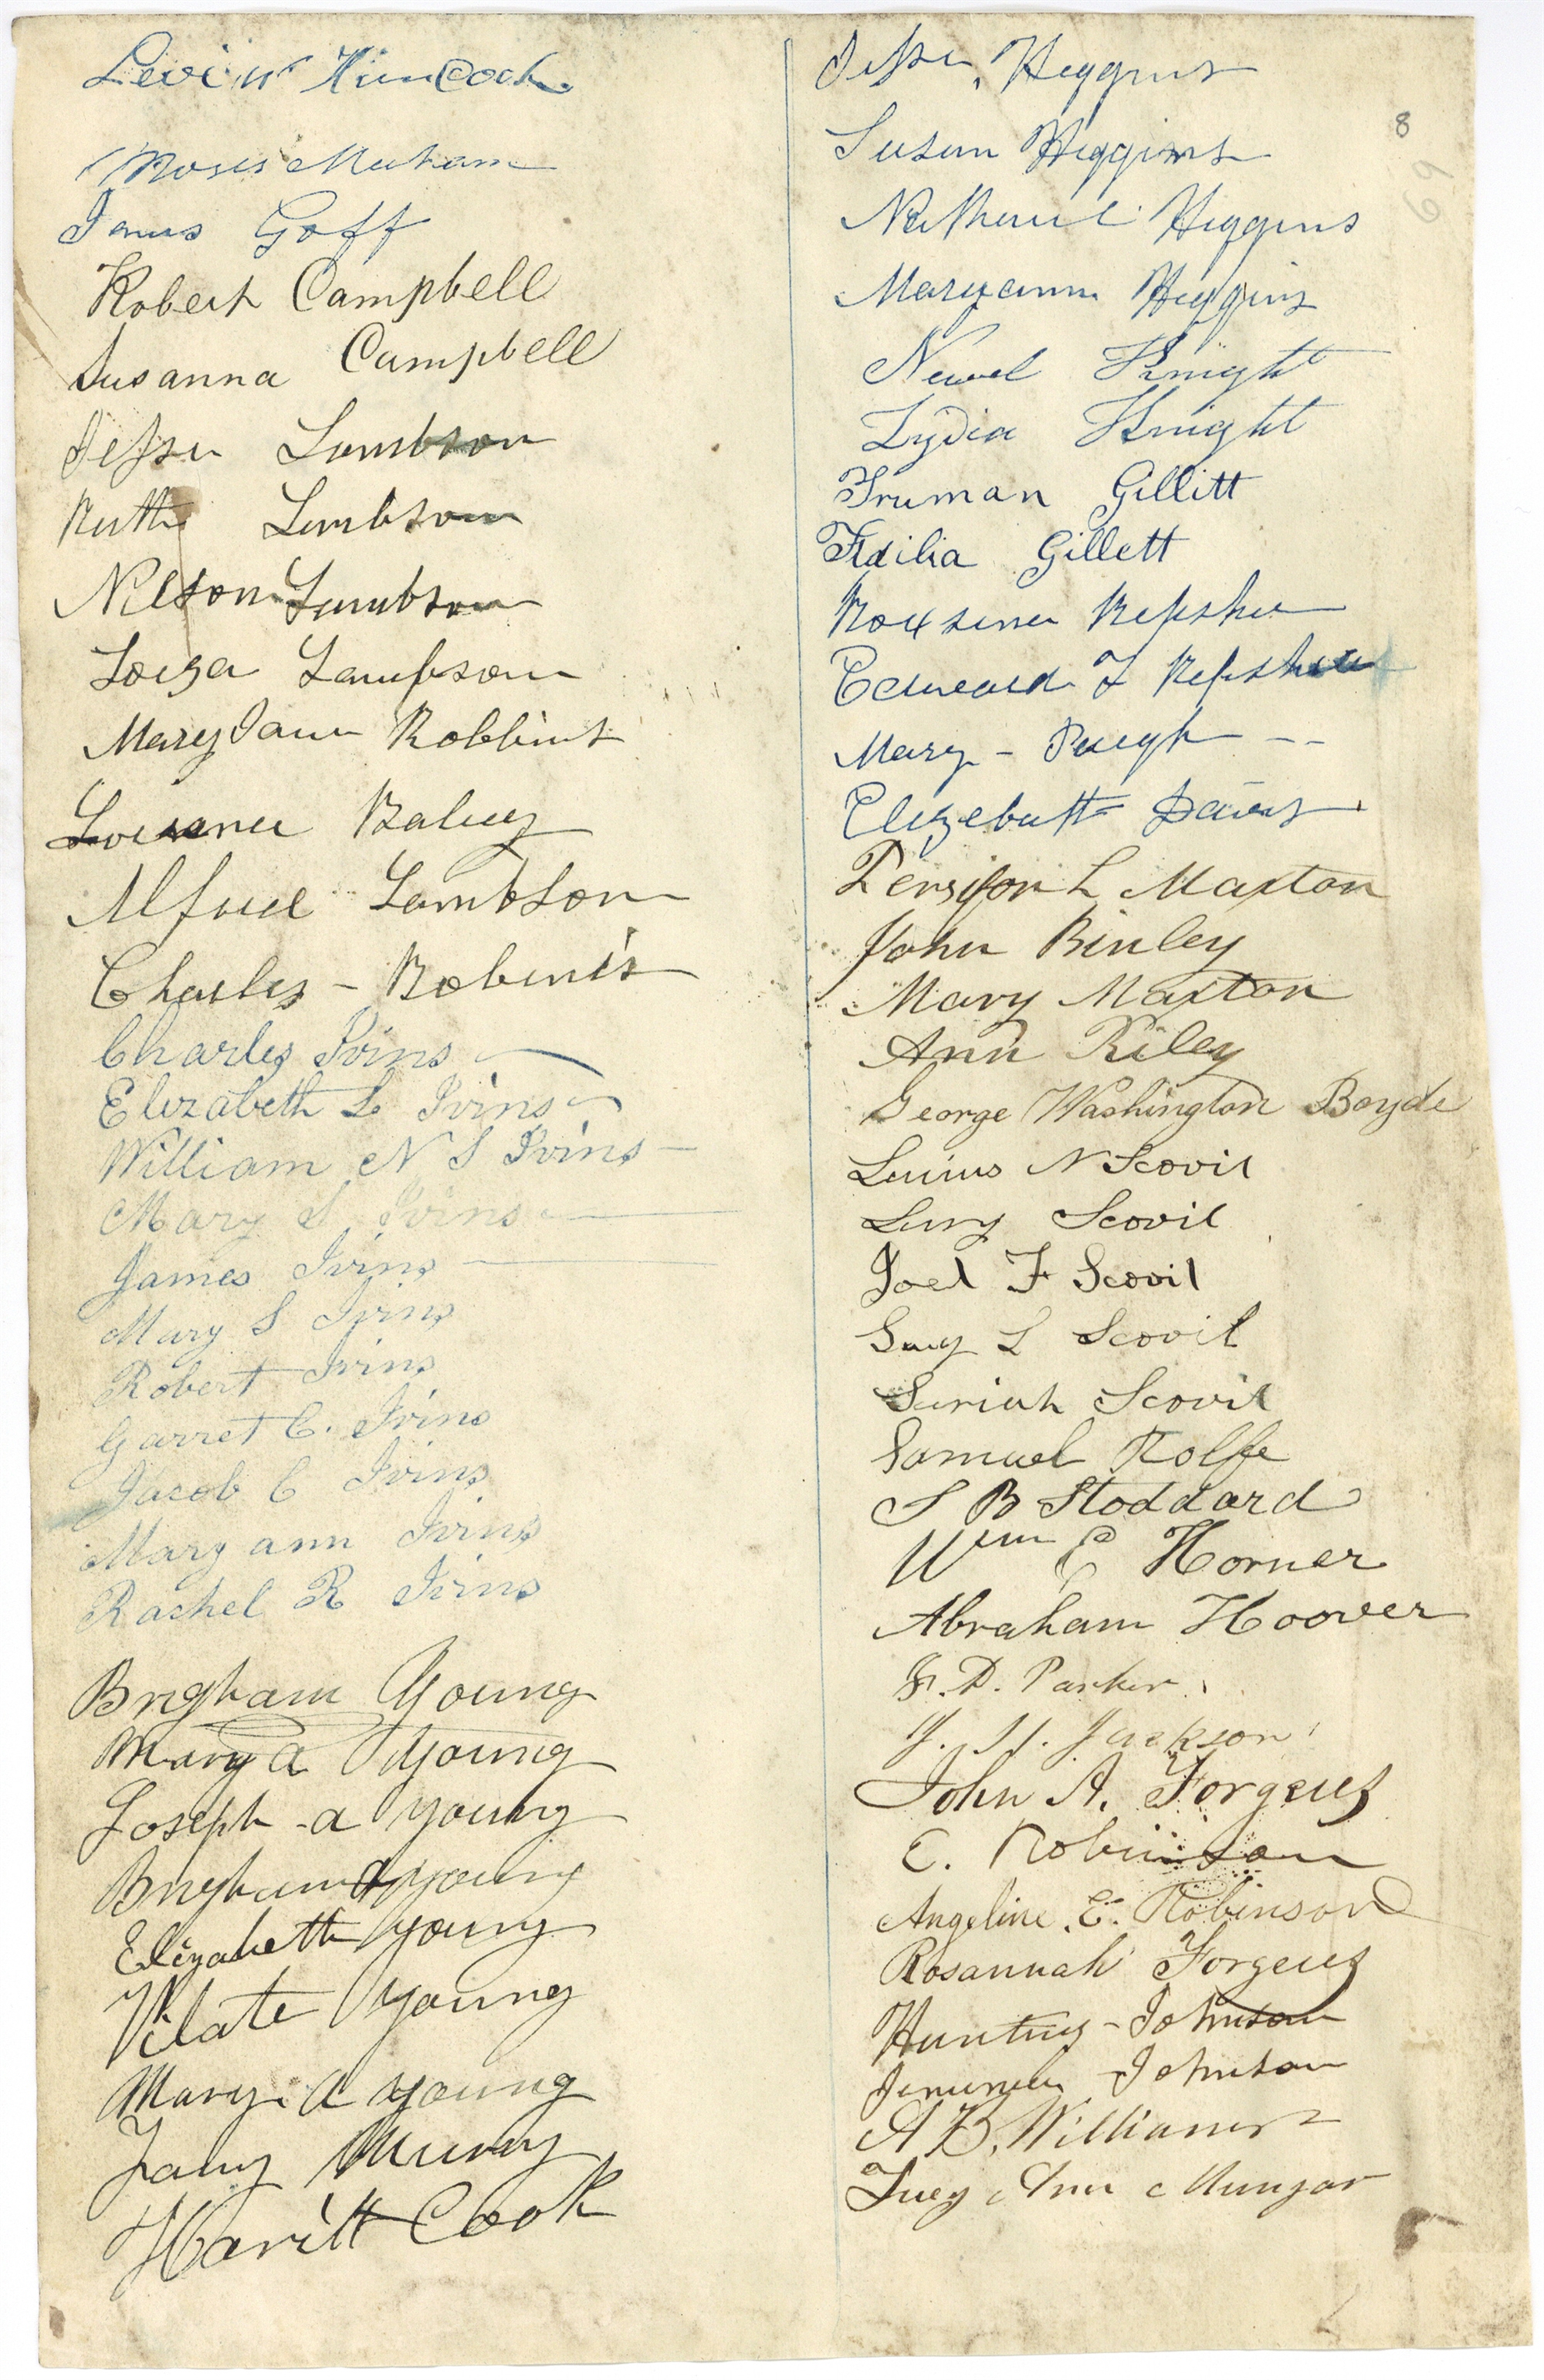 Levi W Hancock
Moses Mecham
James Goff
Robert Campbell
Susanna Campbell
Jesse Lambson
Ruth Lambson
Nelson Lambson
Loiza Lampson
Mary Jane Robbins
Bailey
Alfred Lambson
Charles - Robbins
Charles Ivins
Elizabeth L Ivins
William N S Ivins
Mary S Ivins
James Ivins
Mary S Ivins
Robert Ivins
Garret C. Ivins
Jacob C Ivins
Mary ann Ivins
Rachel R Ivins
Brigham Young
Mary a Young
Joseph a young
Brigham young
Elizabeth young
Vilate young
Mary a young
Fany Murray
Harritt Cook
Jesse Higgins
8
69
Susan Higgins
Nathanel Higgins
Maryann Higgins
Newel Knight
Lydia Knight
Truman Gillitt
Fidilia Gillett
Roxsena Repsher
Edward F Repsher
Mary - Pugh --
Elizebeth Davis
Persifor L Maxton
John Binley
Mary Maxton
Ann Riley
George Washington Boyde
Lucius N Scovil
Lury Scovil
Joel F Scovil
Lucy L Scovil
Sariah Scovil
Samuel Rolfe
S B Stoddard
Wm E Horner
Abraham Hoover
F. D. Parker
J. H. Jackson
John A. Forgeus
E. Robinson
Angeline E. Robinson
Rosannah Forgeus
Hunting - Johnson
Jemima Johnson
A B. Williams
Lucy Ann Munjar